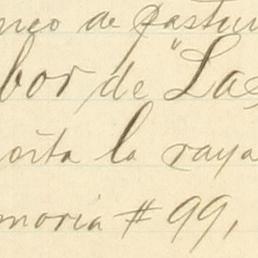 nco de pastu
bor de "Las
osta la raya
moria # 99,